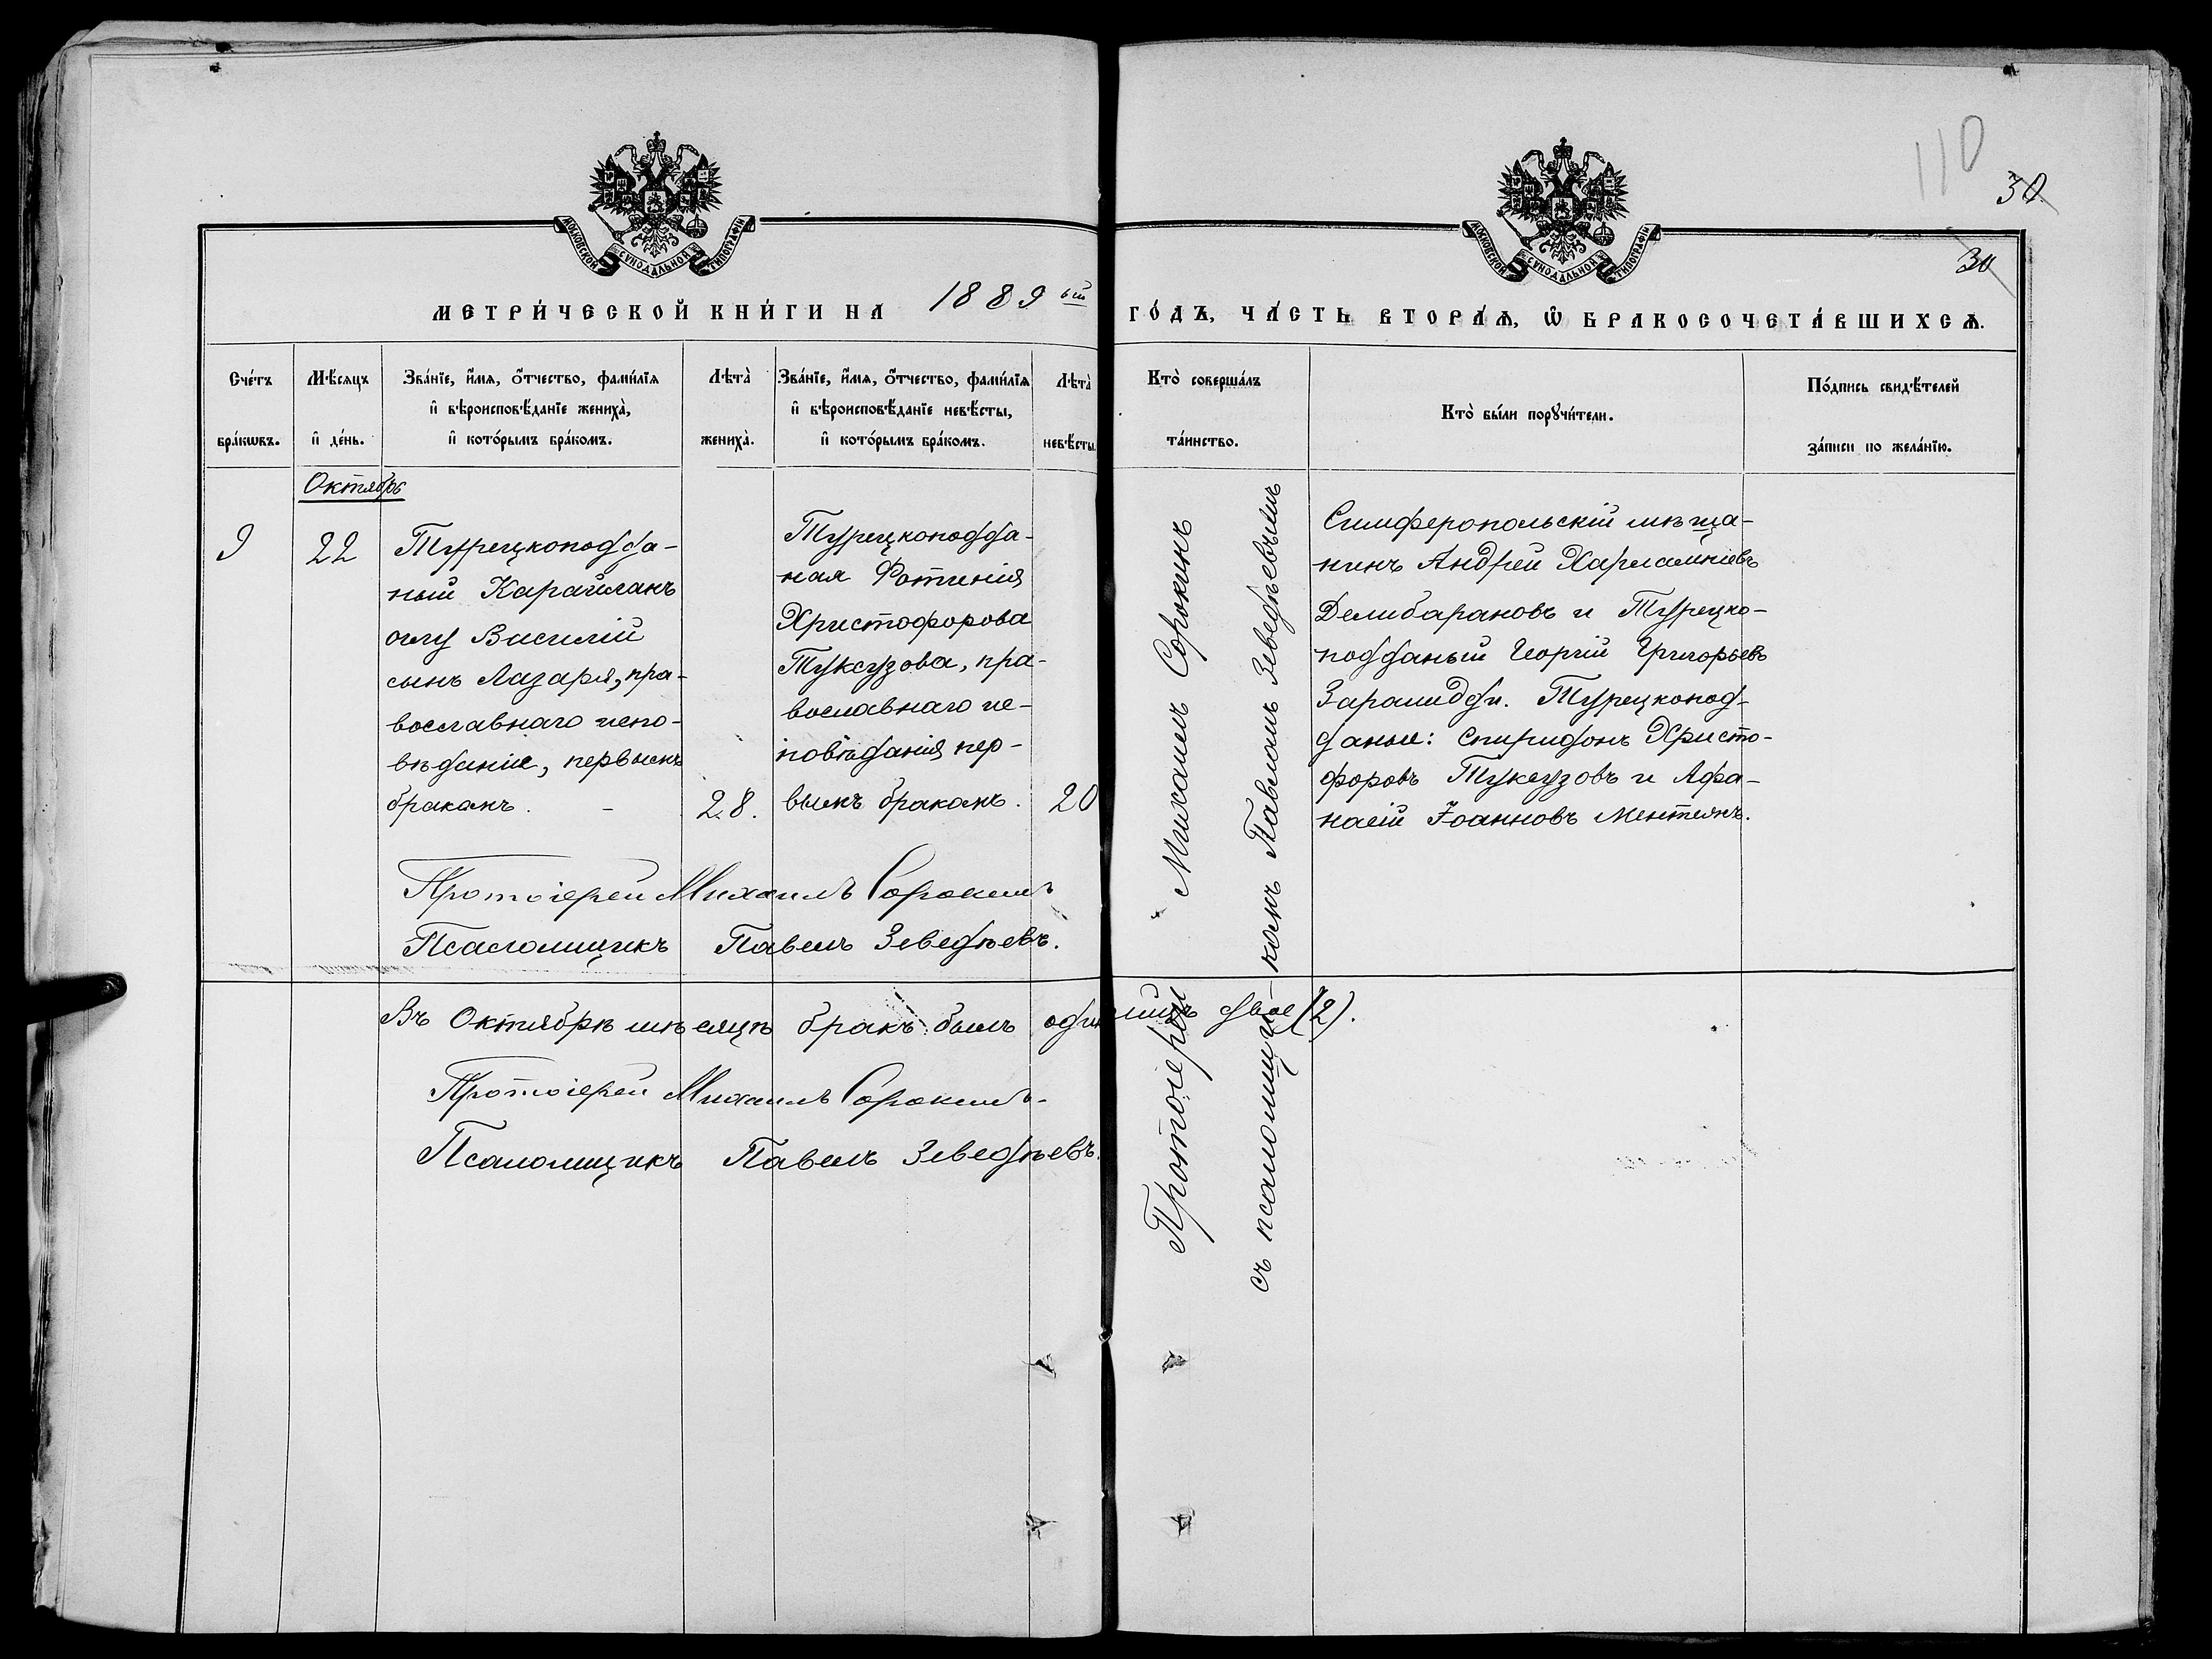 110
30
30
МОСКОВСКОЙ СѴНОДАЛЬНОЙ ТИПОГРАФІИ
МОСКОВСКОЙ СѴНОДАЛЬНОЙ ТИПОГРАФІИ
МЕТРИ́ЧЕСКОЙ КНИ́ГИ НА 1889 ый ГО́ДЪ, ЧА́СТЬ ВТОРА́Ѧ, Ѿ БРАКОСОЧЕТА́ВШИХСѦ.
Сче́тъ
бра́кѡвъ.
Мѣ́сяцъ
и҆ де́нь.
Зва́нїе, и҆́мѧ, ѻ҆́тчество, фами́лїѧ
и҆ вѣроисповѣ́данїе жениха̀,
и҆ кото́рымъ бра́комъ.
Лѣта̀
жениха̀.
Зва́нїе, и҆́мѧ, ѻ҆́тчество, фами́лїѧ
и҆ вѣроисповѣ́данїе невѣ́сты,
и҆ кото́рымъ бра́комъ.
Лѣта̀
невѣ́сты
Кто̀ соверша́лъ
та́инство.
Кто̀ бы́ли порꙋчи́тели.
По́дпись свидѣ́телей
за́писи по жела́нїю.
Октябрь
9
22
Турецкоподда-
ный Карайланъ
оглу Василій
сынъ Лазаря, пра-
вославнаго испо-
вѣданія, первымъ
бракомъ. -
28.
Турецкоподда-
ная Фотинія
Христофорова
Туксузова, пра-
вославнаго ис-
повѣданія пер-
вымъ бракомъ.
20
Протоіерей Михаилъ Сорокинъ
съ псаломщи-комъ Павломъ Зеведѣевымъ
Симферопольскій мѣща-
нинъ Андрей Харлампіевъ
Делибарановъ и Турецко-
подданый Георгій Григорьевъ
Турецкопод-
даные: Спиридонъ Христо-
форовъ Туксузовъ и Афа-
насій Іоанновъ
Протоіерей Михаилъ Сорокинъ
Псаломщикъ Павелъ Зеведѣевъ.
Въ Октябрѣ мѣсяцѣ бракъ былъ двое (2).
Протоіерей Михаилъ Сорокинъ
Псаломщикъ Павелъ Зеведѣевъ.